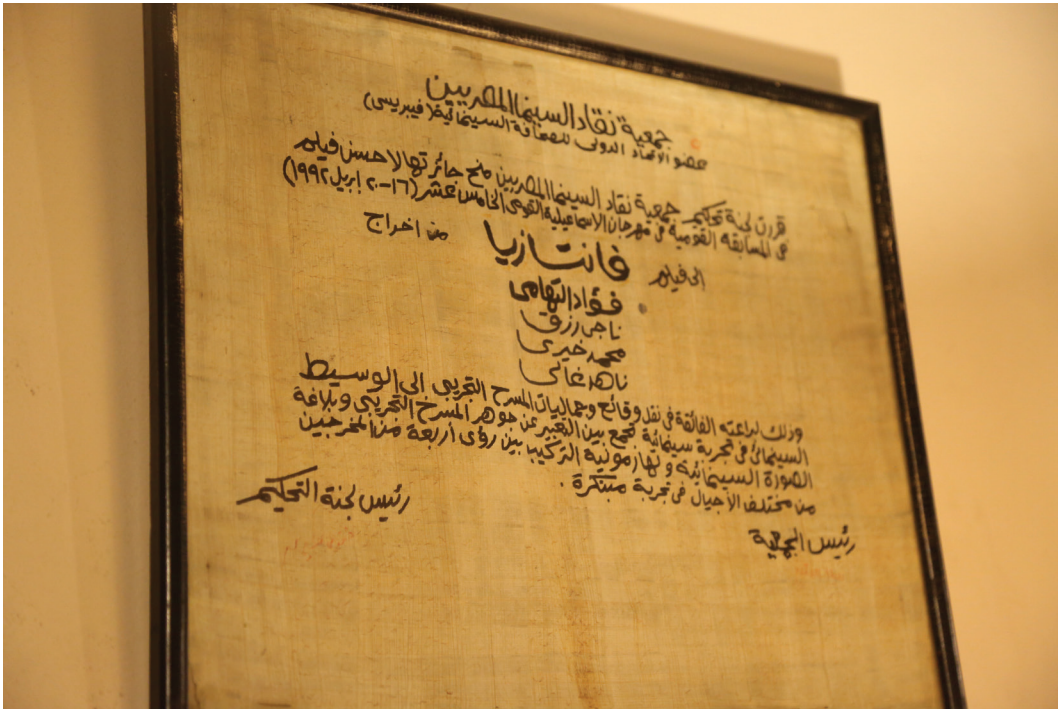 جمعية نقاد السينما المصريين
عضو الاتحاد الدولى للصحافة السينمائية (فيبريسى)
قررت لجنة تحكيم جمعية نقاد السينما المصريين منح جائزتها لاحسن فيلم
فى المسابقة القومية فى مهرجان الاسماعيلية القومى الخامس عشر (١٦-٢٠ إبريل ١٩٩٢)
الى فيلم فانتازيا من اخراج
فؤاد التهامى
ناجى رزق
محمد خيرى
ناهد غالى
وذلك لبراعته الفائقة فى نقل وقائع وجماليات المسرح التجريبى الى الوسيط
السينمائى فى تجربة سينمائية تجمع بين التعبير عن جوهر المسرح التجريبى وبلاغة
الصورة السينمائية وهارمونية التركيب بين رؤى أربعة من المخرجين
من مختلف الأجيال فى تجربة مبتكرة .
رئيس لجنة التحكيم
رئيس الجمعية